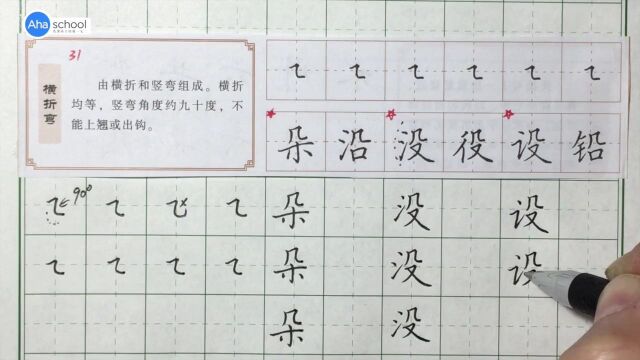 Aha school
31
横折弯
由横折和竖弯组成。横折
均等，竖弯角度约九十度，不
能上翘或出钩。
㇍ ㇍ ㇍ ㇍ ㇍ ㇍
朵 沿 没 役 设 铅
㇍ 90° ㇍ ㇍ × ㇍ 朵 没 设
㇍ ㇍ ㇍ ㇍ 朵 没 设
朵 没